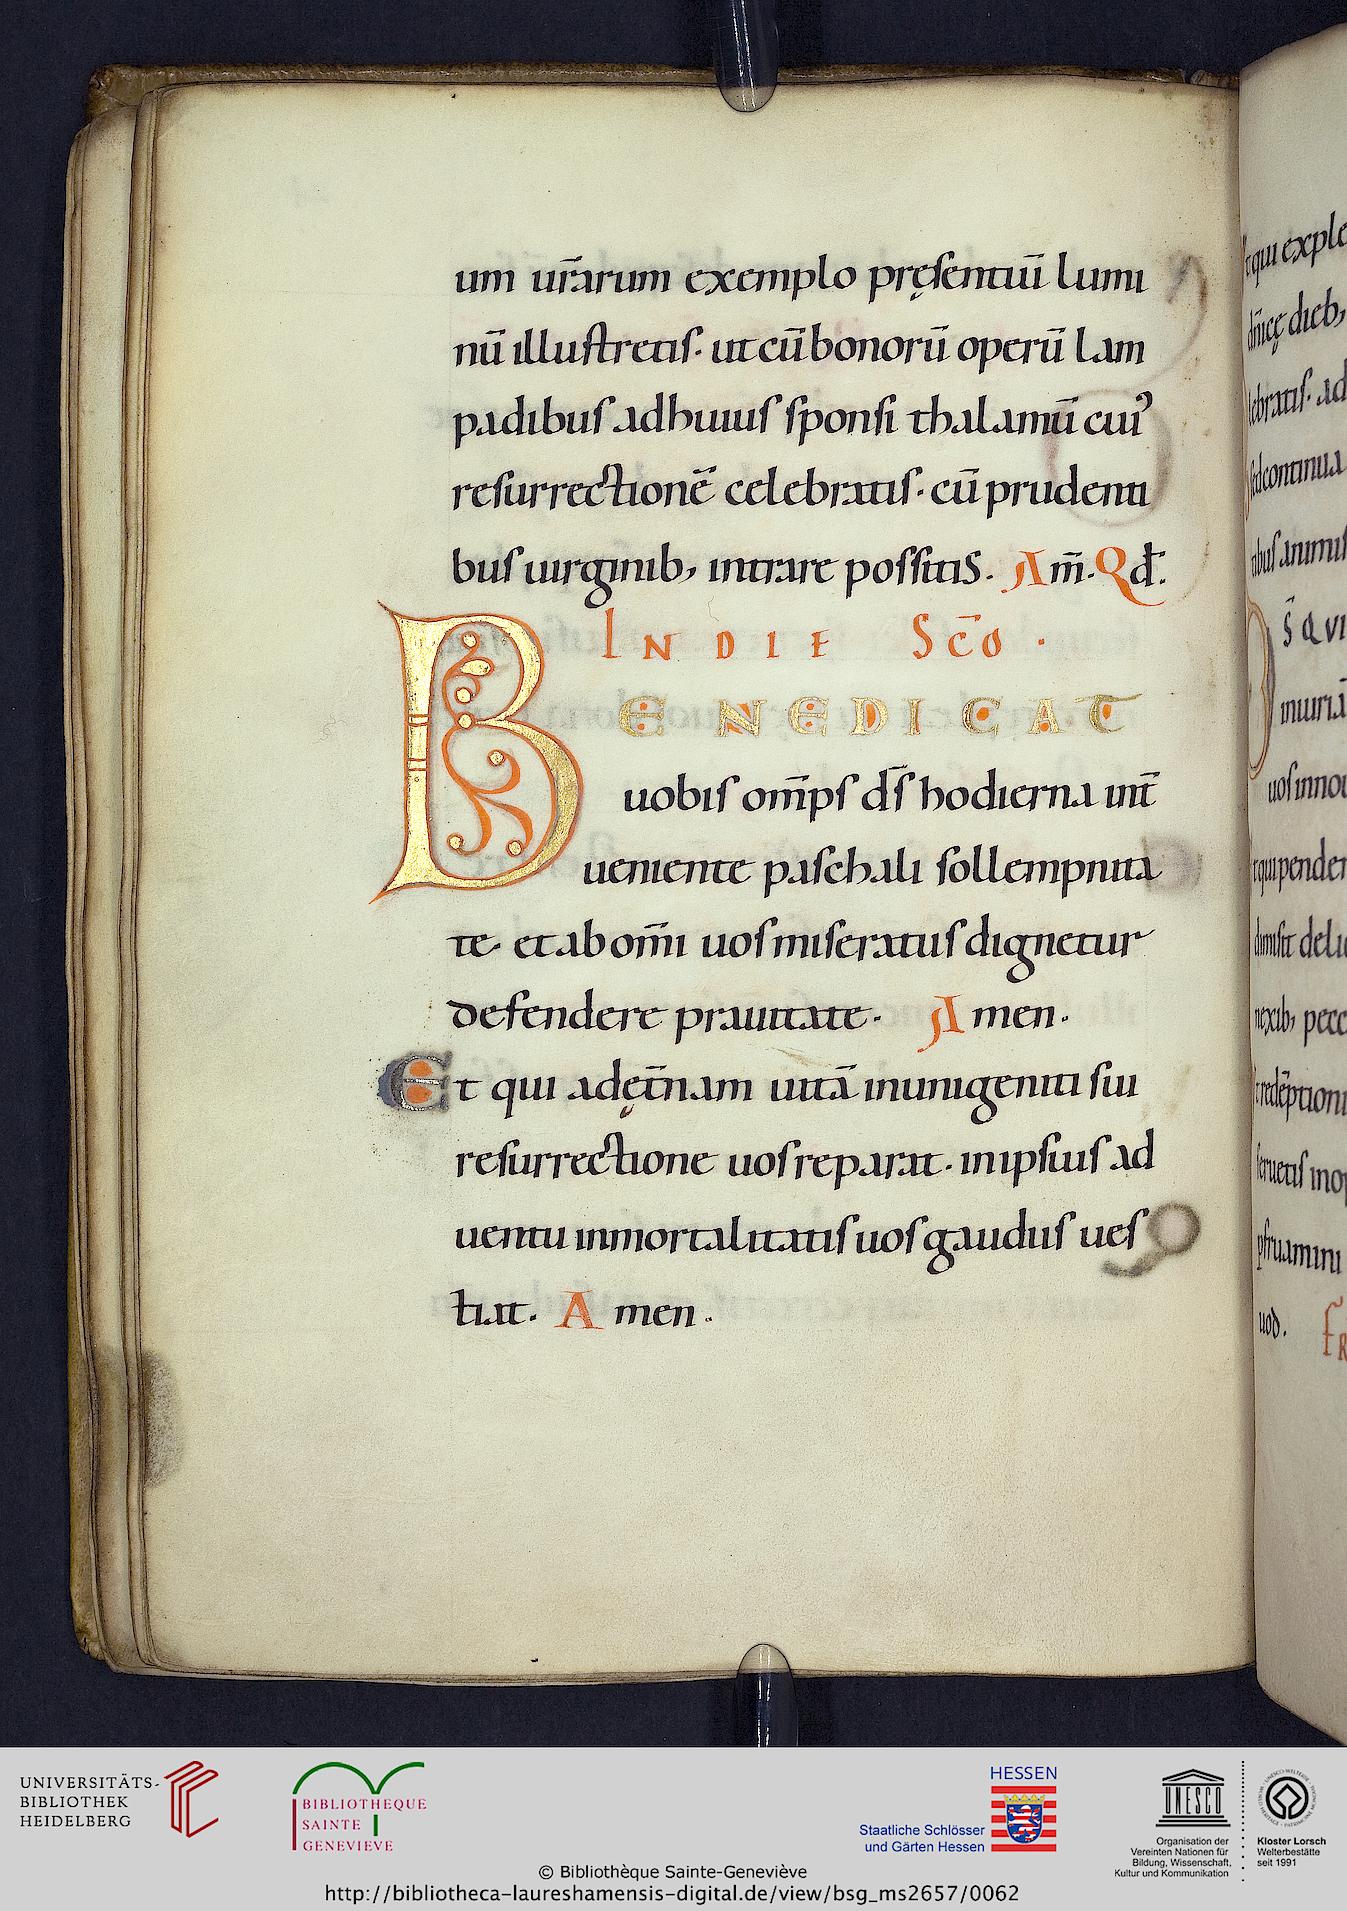 um ur̄arum exemplo pręsentiū lumi
nū illustretis· ut cū bonorū operū lam
padibus ad huius sponsi thalamū cuiꝰ
resurrectionē celebratis· cū prudenti
bus uirginib, intrare possitis. Am̄. Qđ.
IN DIE SC̄O·
BENEDICAT
uobis om̄ps d̄s hodierna int̄
ueniente paschali sollempnita
te· et ab om̄i uos miseratus dignetur
defendere prauitate· Amen·
Et qui ad ęt̄nam uitā in unigeniti sui
resurrectione uos reparat· in ipsius ad
uentu inmortalitatis uos gaudiis ues
tiat. Amen.
qui exple
dn̄icę dieb,
lebratis· ad
sed continua
ibus animis
S̄ QVI
iniuriā
uos innou
qui pender
dimisit delic
nexib, pecc
redēption
seruetis inop
pfruamini
uod. FR
UNIVERSITÄTS-
BIBLIOTHEK
HEIDELBERG
BIBLIOTHEQUE
SAINTE
GENEVIEVE
HESSEN
Staatliche Schlösser
und Gärten Hessen
UNESCO
Organisation der
Vereinten Nationen für
Bildung, Wissenschaft,
Kultur und Kommunikation
Kloster Lorsch
Welterbestätte
seit 1991
© Bibliothèque Sainte-Geneviève
http://bibliotheca-laureshamensis-digital.de/view/bsg_ms2657/0062